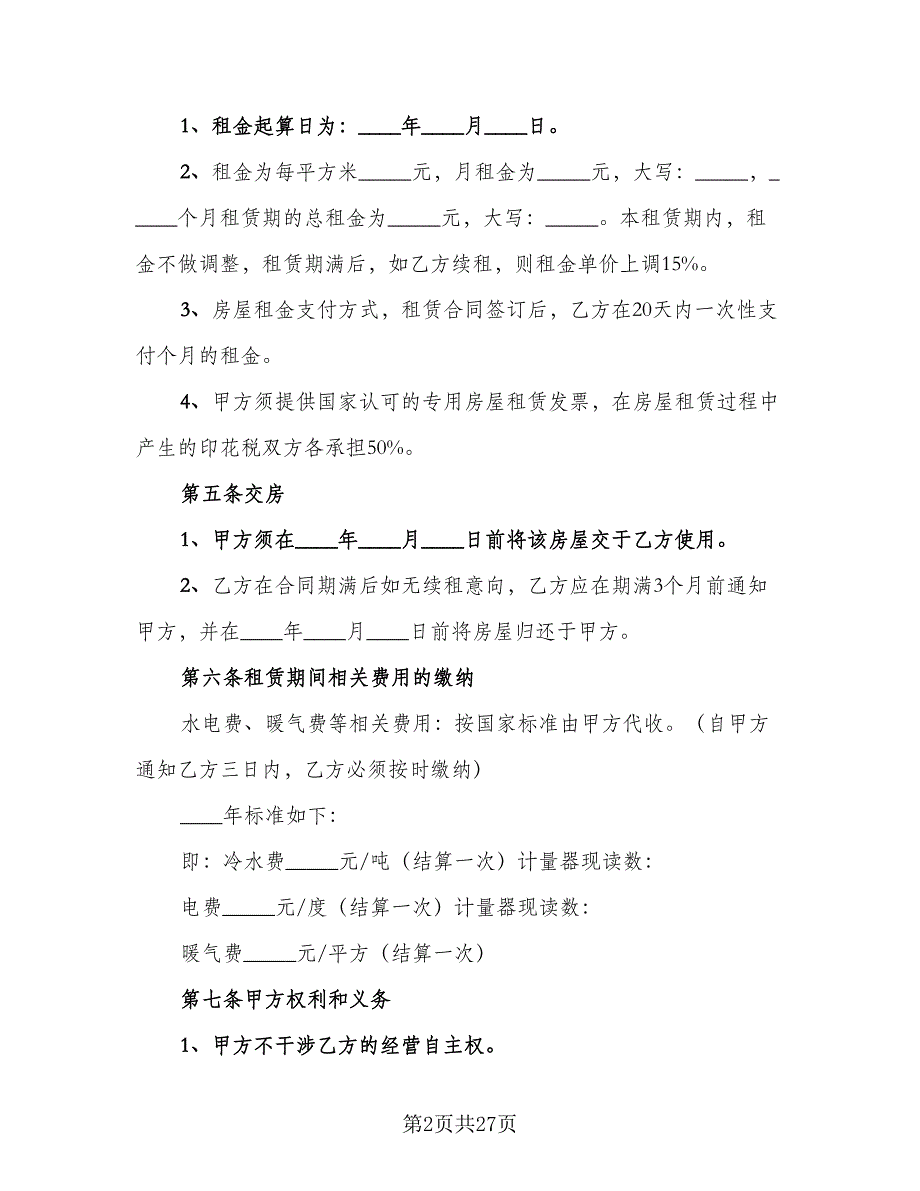 1、租金起算日为：____年____月____日。
2、租金为每平方米_____元，月租金为_____元，大写：_____，_
____个月租赁期的总租金为_____元，大写：_____。本租赁期内，租
金不做调整，租赁期满后，如乙方续租，则租金单价上调15%。
3、房屋租金支付方式，租赁合同签订后，乙方在20天内一次性支
付个月的租金。
4、甲方须提供国家认可的专用房屋租赁发票，在房屋租赁过程中
产生的印花税双方各承担50%。
第五条交房
1、甲方须在____年____月____日前将该房屋交于乙方使用。
2、乙方在合同期满后如无续租意向，乙方应在期满3个月前通知
甲方，并在____年____月____日前将房屋归还于甲方。
第六条租赁期间相关费用的缴纳
水电费、暖气费等相关费用：按国家标准由甲方代收。（自甲方
通知乙方三日内，乙方必须按时缴纳）
____年标准如下：
即：冷水费_____元/吨（结算一次）计量器现读数：
电费_____元/度（结算一次）计量器现读数：
暖气费_____元/平方（结算一次）
第七条甲方权利和义务
1、甲方不干涉乙方的经营自主权。
第2页共27页